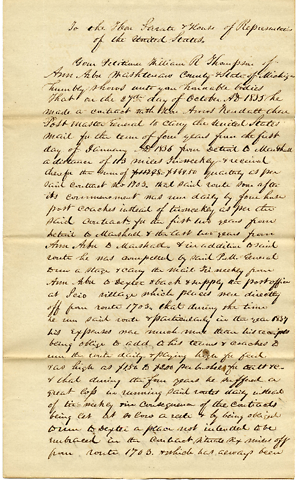 To the Hon Senate & House of Representatives
of the United States,
Your Petitioner William R Thompson of
Ann Arbor Washtenaw County & State of Michigan
humbly shows unto your honorable bodies
That on the 27th day of October AD 1835 he
made a contract with Hon Amos Kendall then
Post Master General to carry the United States
Mail for the term of four years from the first
day of January AD 1836 from Detroit to Marshall
a distance of miles Triweekly & receive
therefor the sum of quarterly as per
said Contract No 1703. That said route soon after
its commencement was run daily by four horse
post coaches instead of triweekly as per the
said Contract for the first two years from
Detroit to Marshall & the last two years from
Ann Arbor to Marshall & in addition to said
route he was compelled by said P.M. General
to run a stage & carry the mail Triweekly from
Ann Arbor to Dexter & back & supply the post office
at Scio village which places was directly
off from route 1703. that during the time
he run said route & particularly in the year 1837
his expenses was much more than his receipts
being obliged to add to his teams & coaches to
run the route daily & paying for feed
as high as per bushel for oats &c
& that during the four years he suffered a
great loss in running said route daily instead
of tri weekly & in consequence of the Contracts
being let at so low a rate & by being obliged
to run to Dexter a place not intended to be
embraced in the Contract, situate six miles off
from route 1703. & which has always been